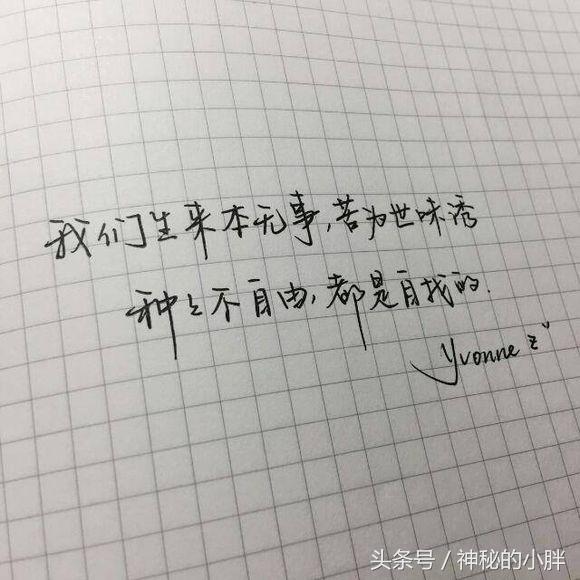 我们生来本无事,苦为世味诱
种々不自由,都是自找的.
Yvonne z
头条号/神秘的小胖